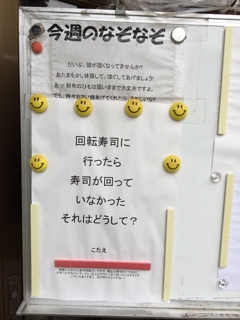 今週のなぞなぞ
だいぶ、頭が固くなってませんか?
あたまも少し体操して、ほぐしてあげましょう
あッ 財布のひもは固いままで大丈夫ですよ。
回転寿司に
行ったら
寿司が回って
いなかった
それはどうして?
こたえ